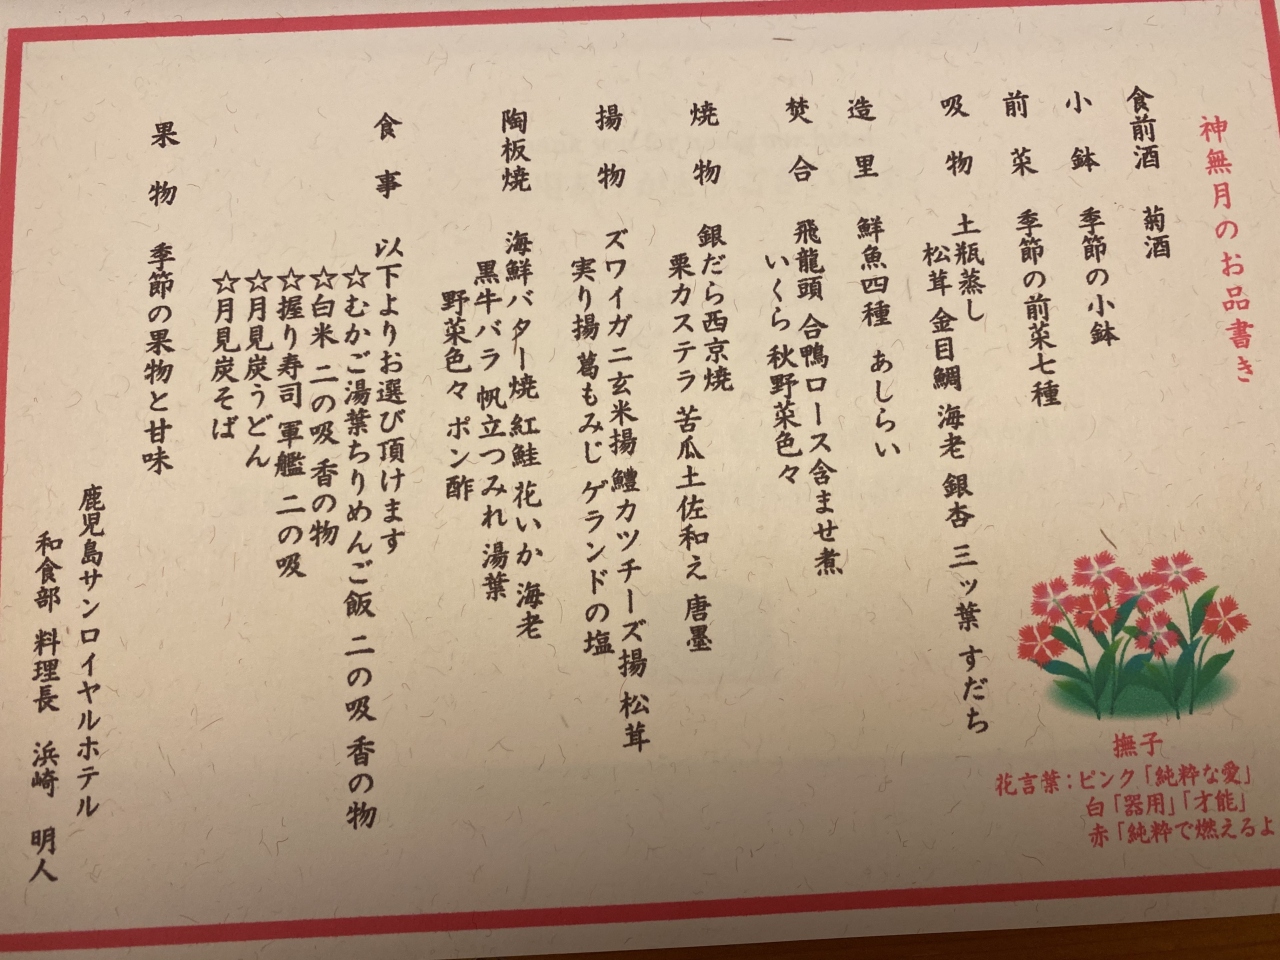 神無月のお品書き
食前酒 菊酒
小鉢 季節の小鉢
前菜 季節の前菜七種
吸物 土瓶蒸し
松茸 金目鯛 海老 銀杏 三ッ葉 すだち
造里 鮮魚四種 あしらい
焚合 飛龍頭 合鴨ロース含ませ煮
いくら 秋野菜色々
焼物 銀だら西京焼
栗カステラ 苦瓜土佐和え 唐墨
揚物 ズワイガニ玄米揚 鱧カツチーズ揚 松茸
実り揚 葛もみじ ゲランドの塩
陶板焼 海鮮バター焼 紅鮭 花いか 海老
黒牛バラ 帆立つみれ 湯葉
野菜色々 ポン酢
食事 以下よりお選び頂けます
☆むかご湯葉ちりめんご飯 二の吸 香の物
☆白米 二の吸 香の物
☆握り寿司 軍艦 二の吸
☆月見炭うどん
☆月見炭そば
果物 季節の果物と甘味
鹿児島サンロイヤルホテル
和食部 料理長 浜崎 明人
撫子
花言葉：ピンク「純粋な愛」
白「器用」「才能」
赤「純粋で燃えるよ